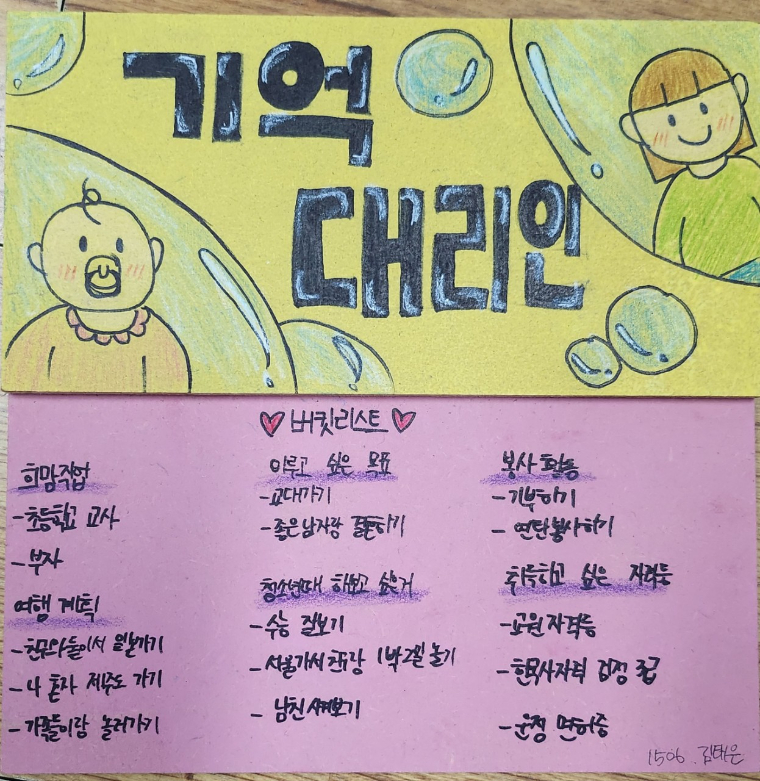 기억
대리인
버킷리스트
희망직업
-초등학교 교사
-부자
여행 계획
-친구와 둘이서 일본가기
-나 혼자 제주도 가기
-가족들이랑 놀러가기
이루고 싶은 목표
-교대가기
-좋은남자랑 결혼하기
청소년때 해보고 싶은거
-수능 잘보기
-서울가서 친구랑 1박2일 놀기
- 남친 사겨보기
봉사 활동
-기부하기
- 연탄봉사하기
취득하고 싶은 자격증
-교원자격증
-한국사자격 검정 1급
-운전 면허증
1506. 김태은